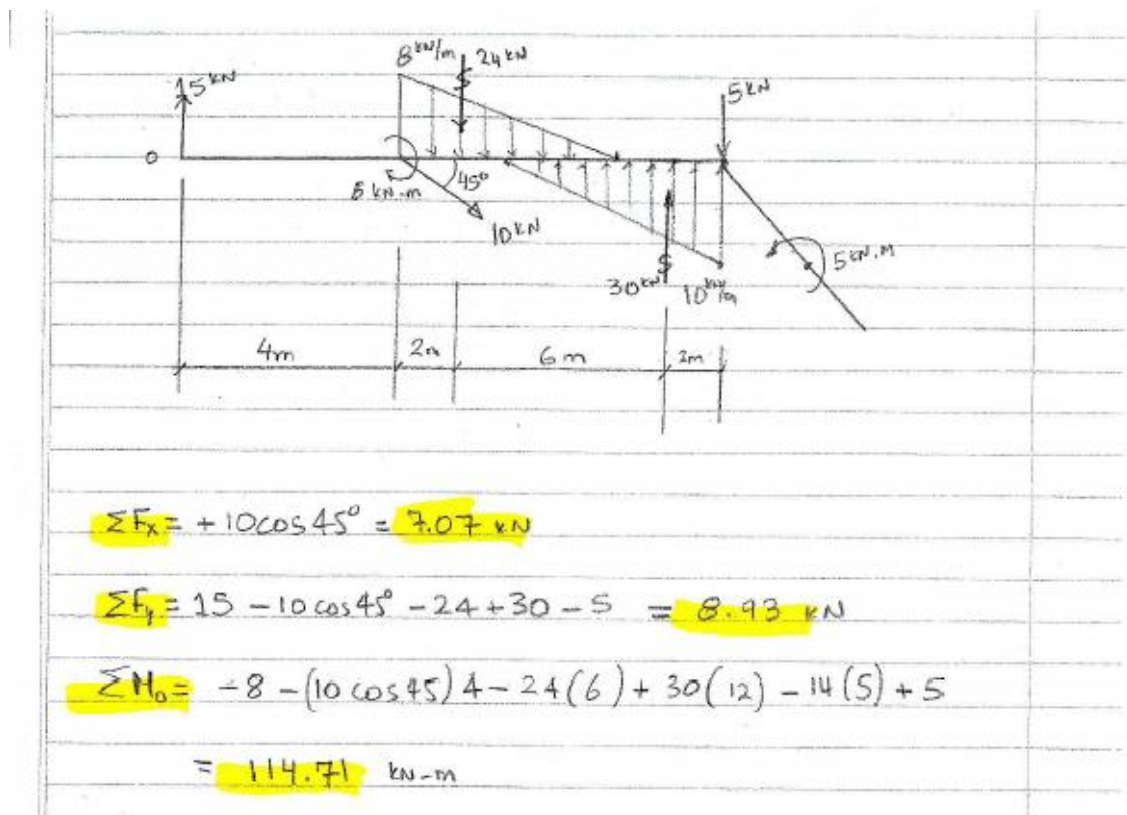 8 kN/m
24 kN
15 kN
5 kN
0
8 kN-m
45°
10 kN
5 kN.m
30 kN
10 kN/m
4m
2m
6m
2m
ΣFx = +10cos45° = 7.07 kN
ΣFy = 15 - 10cos45° - 24 + 30 - 5 = 8.93 kN
ΣM₀ = -8 - (10 cos 45) 4 - 24(6) + 30(12) - 14(5) + 5
= 114.71 kN-m